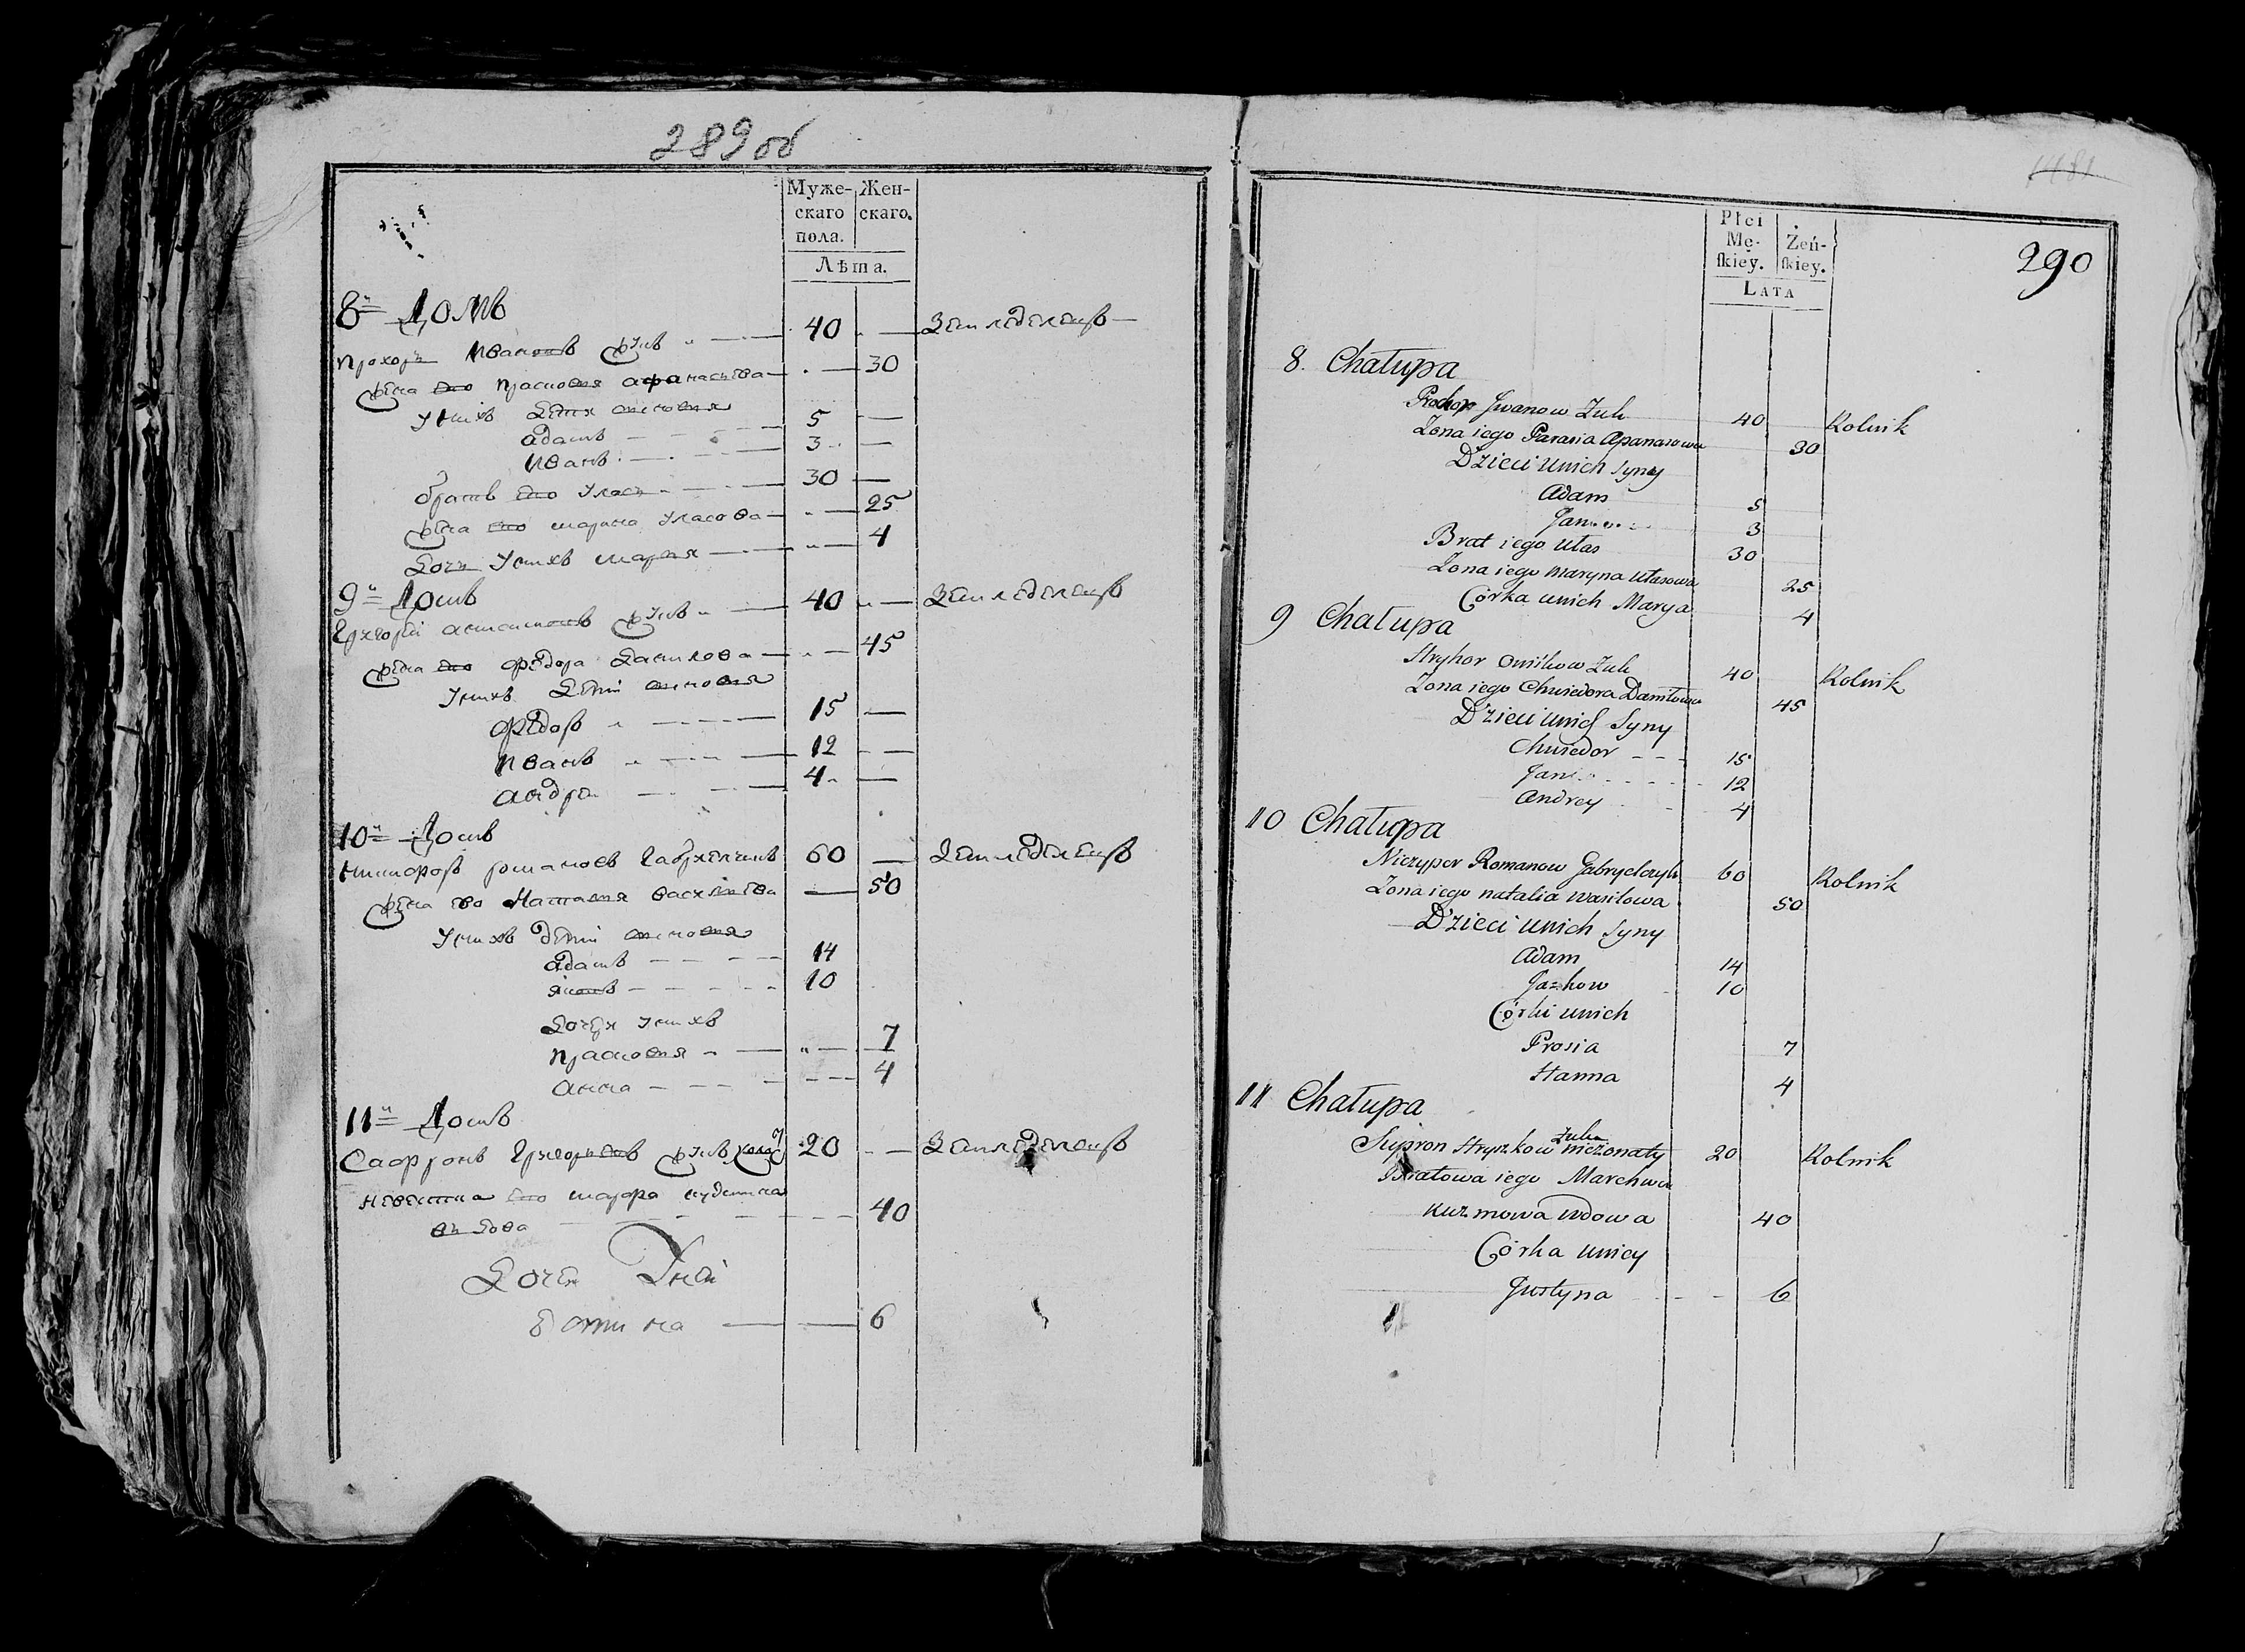 289 об
Муже-
скаго
пола.
Жен-
скаго.
Лѣта.
8й Домъ
Прохоръ Ивановъ Жукъ 40 Земледелецъ
Жена его Прасковя Афанасьева 30
У нихъ дети сыновя
Адамъ 5
Иванъ 3
Братъ его Уласъ 30
Жена его Марина Уласова 25
Дочь у нихъ Мария 4
9й Домъ
Григорий Жукъ 40 Земледелецъ
Жена его Федора Данилова 45
У нихъ дети сыновя
Федоръ 15
Иванъ 12
Андрей 4
10й Домъ
Никифоръ Романовъ Габриелчикъ 60 Земледелецъ
Жена его Наталия Василева 50
У нихъ дети сыновя
Адамъ 14
10
Дочери у нихъ
Прасковя 7
Анна 4
11й Домъ
Сафронъ Григорьевъ Жукъ холос 20 Земледелецъ
Невестка его Марфа Кузмина
вдова 40
Дочь У ней
Юстина 6
1481
290
Płci
Mę-
ſkiey.
Żeń-
ſkiey.
LATA
8. Chałupa
Prokop Jwanow Zuk 40 Rolnik
Zona iego Parasia Apanasowa 30
Dzieci unich Syny
Adam 5
Jan 3
Brat iego Ułas 30
Zona iego Maryna Ułasowa 25
Córka unich Marya 4
9 Chałupa
Hryhor Zuk 40 Rolnik
Zona iego Chwiedora Daniłowa 45
Dzieci unich Syny
Chwiedor 15
Jan 12
Andrey 4
10 Chałupa
Niczypor Romanow Gabryelczyk 60 Rolnik
Zona iego Natalia Wasilowa 50
Dzieci unich Syny
Adam 14
Jazkow 10
Córki unich
Prosia 7
Hanna 4
11 Chałupa
Zuk
Supron Hryszkow nieżonaty 20 Rolnik
Bratowa iego Marchwa
Kuzmowa Wdowa 40
Córka unicy
Justyna 6